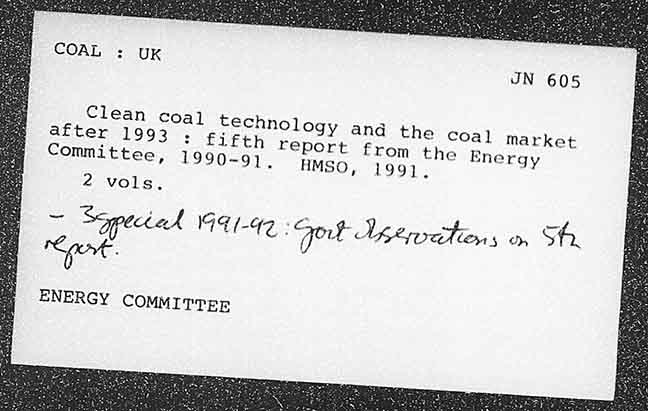 COAL : UK
JN 605
Clean coal technology and the coal market
after 1993 : fifth report from the Energy
Committee, 1990-91. HMSO, 1991.
2 vols.
- 3 special 1991-92 : Govt Observations on 5th
report.
ENERGY COMMITTEE